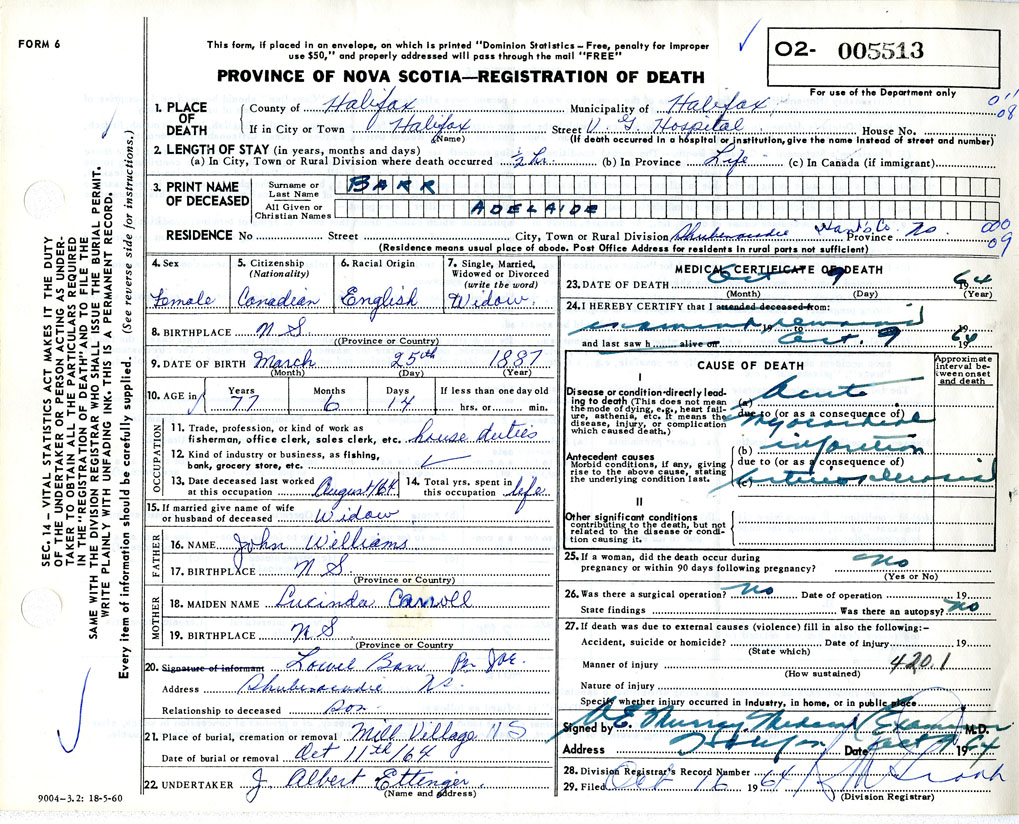 FORM 6
This form, if placed in an envelope, on which is printed "Dominion Statistics – Free, penalty for improper
use $50," and properly addressed will pass through the mail "FREE"
02- 005513
For use of the Department only
PROVINCE OF NOVA SCOTIA—REGISTRATION OF DEATH
1. PLACE OF DEATH
County of Halifax Municipality of Halifax
If in City or Town Halifax Street V. G. Hospital House No.
(Name) (If death occurred in a hospital or institution, give the name instead of street and number)
2. LENGTH OF STAY (in years, months and days)
(a) In City, Town or Rural Division where death occurred hr. (b) In Province Life (c) In Canada (if immigrant)
3. PRINT NAME OF DECEASED
Surname or Last Name BARR
All Given or Christian Names ADELAIDE
RESIDENCE No Street City, Town or Rural Division Shubenacadie Hant's Co. Province N.S.
(Residence means usual place of abode. Post Office Address for residents in rural parts not sufficient)
000
09
4. Sex Female
5. Citizenship (Nationality) Canadian
6. Racial Origin English
7. Single, Married, Widowed or Divorced (write the word) Widow.
8. BIRTHPLACE N S
(Province or Country)
9. DATE OF BIRTH March 25th 1887
(Month) (Day) (Year)
10. AGE in Years 77 Months 6 Days 14 If less than one day old hrs. or min.
OCCUPATION
11. Trade, profession, or kind of work as
fisherman, office clerk, sales clerk, etc. house duties
12. Kind of industry or business, as fishing,
bank, grocery store, etc.
13. Date deceased last worked
at this occupation August/64
14. Total yrs. spent in
this occupation life
15. If married give name of wife
or husband of deceased Widow
FATHER
16. NAME John Williams
17. BIRTHPLACE N S
(Province or Country)
MOTHER
18. MAIDEN NAME Lucinda Carroll
19. BIRTHPLACE N S
(Province or Country
20. Signature of informant Lowel Barr Per
Address Shubenacadie N.S.
Relationship to deceased son
21. Place of burial, cremation or removal Mill Village N S
Date of burial or removal Oct 11th/64
22 UNDERTAKER J. Albert Ettinger
(Name and address)
9004-3.2: 18-5-60
MEDICAL CERTIFICATE OF DEATH
23. DATE OF DEATH Oct 9 64
(Month) (Day) (Year)
24. I HEREBY CERTIFY that I attended deceased from:
examined remains 19
to
and last saw h alive on Oct. 9 19 64
CAUSE OF DEATH
Approximate interval between onset and death
I
Disease or condition directly leading to death (This does not mean the mode of dying, e.g., heart failure, asthenia, etc. It means the disease, injury, or complication which caused death.)
(a) Acute
due to (or as a consequence of)
myocardial
(b) infarction
Antecedent causes
Morbid conditions, if any, giving rise to the above cause, stating the underlying condition last.
due to (or as a consequence of)
(c) arteriosclerosis
II
Other significant conditions
contributing to the death, but not related to the disease or condition causing it.
25. If a woman, did the death occur during
pregnancy or within 90 days following pregnancy? No
(Yes or No)
26. Was there a surgical operation? No Date of operation 19
State findings Was there an autopsy? No
27. If death was due to external causes (violence) fill in also the following:–
Accident, suicide or homicide? Date of injury 19
(State which)
Manner of injury 4201
(How sustained)
Nature of injury
Specify whether injury occurred in industry, in home, or in public place
Signed by Murray Medical Examiner M.D.
Address Halifax Date Oct 9 1964
28. Division Registrar's Record Number
29. Filed Oct 16 1964
(Division Registrar)
SEC. 14 – VITAL STATISTICS ACT MAKES IT THE DUTY
OF THE UNDERTAKER OR PERSON ACTING AS UNDER-
TAKER TO OBTAIN ALL THE PARTICULARS REQUIRED
IN THE "REGISTRATION OF DEATH" AND TO FILE THE
SAME WITH THE DIVISION REGISTRAR WHO SHALL ISSUE THE BURIAL PERMIT.
WRITE PLAINLY WITH UNFADING INK. THIS IS A PERMANENT RECORD.
Every item of information should be carefully supplied. (See reverse side for instructions.)